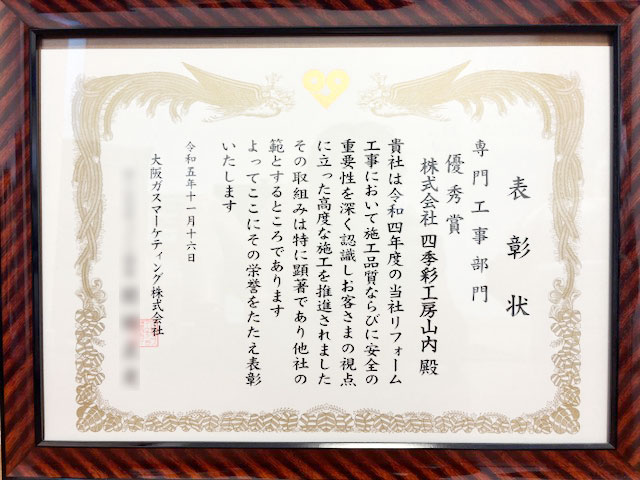 表彰状
専門工事部門
優秀賞
株式会社 四季彩工房山内 殿
貴社は令和四年度の当社リフォーム
工事において施工品質ならびに安全の
重要性を深く認識しお客さまの視点
に立った高度な施工を推進されました
その取組みは特に顕著であり他社の
範とするところであります
よってここにその栄誉をたたえ表彰
いたします
令和五年十一月十六日
大阪ガスマーケティング株式会社